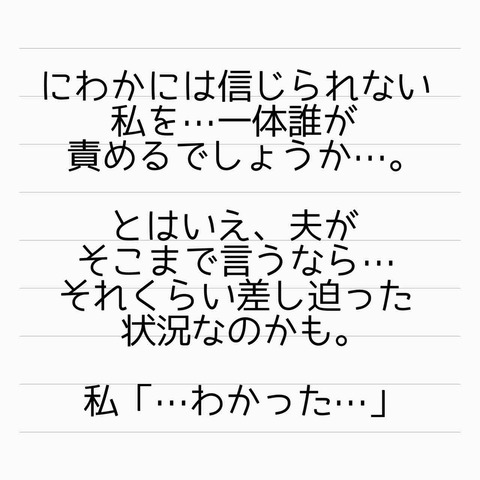 にわかには信じられない
私を…一体誰が
責めるでしょうか…。
とはいえ、夫が
そこまで言うなら…
それくらい差し迫った
状況なのかも。
私「…わかった…」